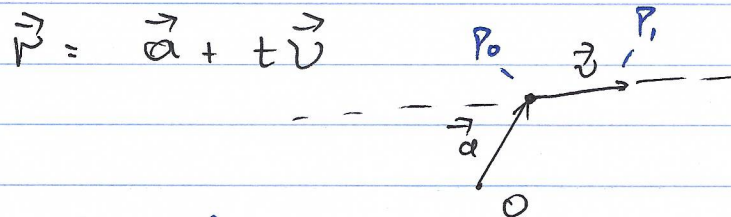 r⃗ = a⃗ + t v⃗
P₀ v⃗ P₁
a⃗
O